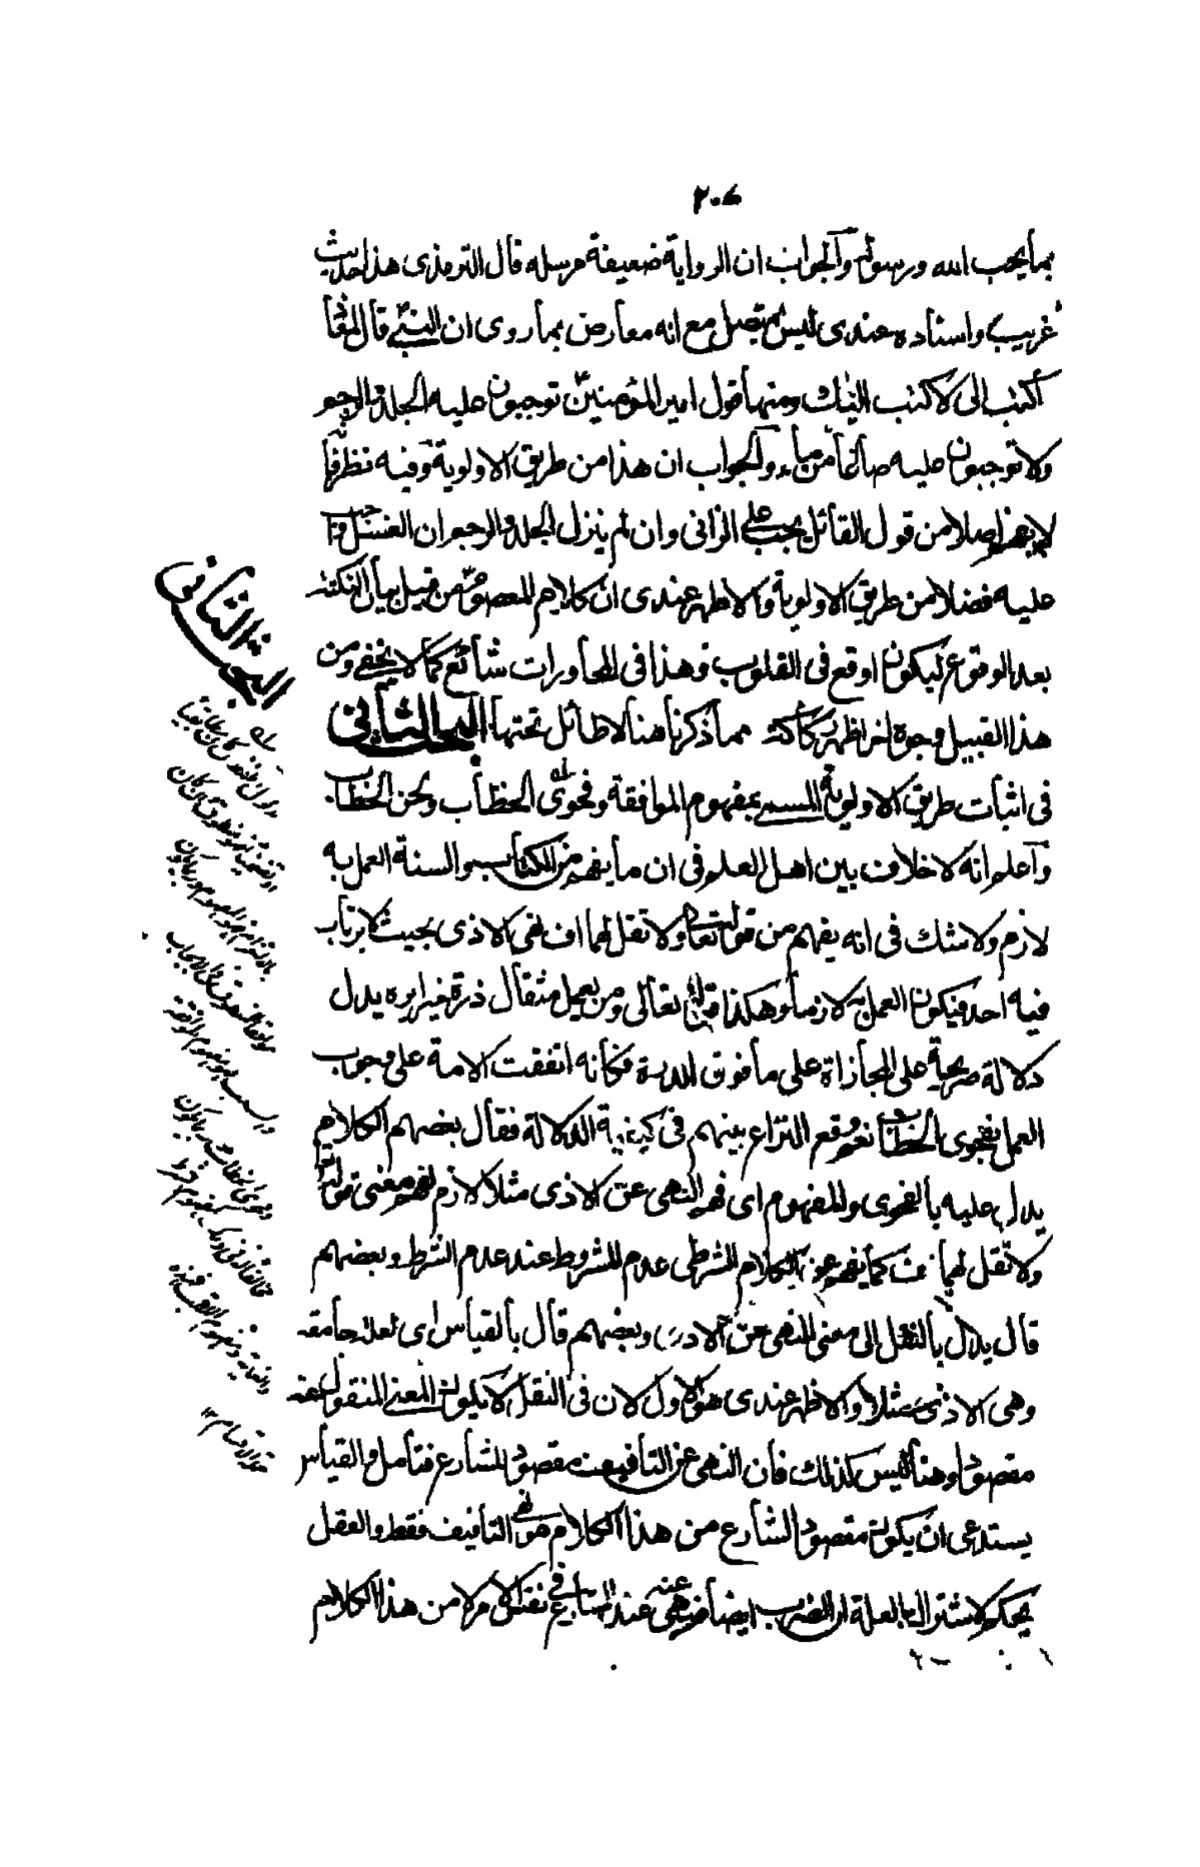 ٢٠٤
بما يحب الله ورسوله والجواب ان الرواية ضعيفة مرسله قال الترمذى هذا حديث
غريب واسناده عندى ليس بمتصل مع انه معارض بما روى ان النبي قال لمعاذ
أكتب الى لاكتب اليك ومنها قول امير المؤمنين توجبون عليه الجلد والرجم
ولا توجبون عليه صاعا من ماء والجواب ان هذا من طريق الاولوية وفيه نظر فانه
لا يفهم اصلا من قول القائل يجب على الزانى وان لم ينزل الجلد والرجم ان الغسل واجب
عليه فضلا من طريق الاولوية والاظهر عندى ان كلام المعصوم من قبيل بيان النكتة
بعد الوقوع ليكون اوقع فى القلوب وهذا فى المحاورات شائع كما لا يخفى ومن
هذا القبيل وجوه اخر اظهر ركاكة مما ذكرنا هنا لا طائل تحتها البحث الثانى
فى اثبات طريق الاولوية المسمى بمفهوم الموافقة وفحوى الخطاب ولحن الخطاب
واعلم انه لا خلاف بين اهل العلم فى ان ما يفهم من الكتاب والسنة العمل به
لازم ولا شك فى انه يفهم من قوله تعالى ولا تقل لهما اف نفي الاذى بحيث لا يرتاب
فيه احد فيكون العمل به لازما وهكذا قوله تعالى ومن يعمل مثقال ذرة خيرا يره يدل
دلالة صريحة على المجازاة على ما فوق الذرة فكأنه اتفقت الامة على وجوب
العمل بفحوى الخطاب نعم وقع النزاع بينهم فى كيفية الدلالة فقال بعضهم الكلام
يدل عليه بالفحوى والمفهوم اى فهم النهى عن الاذى مثلا لازم لفهم معنى قوله
ولا تقل لهما اف كما يفهم من الكلام الشرطى عدم المشروط عند عدم الشرط وبعضهم
قال يدل بالنقل الى معنى النهى عن الاذى وبعضهم قال بالقياس اى لعلة جامعة
وهى الاذى مثلا والاظهر عندى هو الاول لان فى النقل لا يكون المعنى المنقول عنه
مقصودا وهنا ليس كذلك فان النهى عن التأفيف مقصود للشارع فتأمل والقياس
يستدعى ان يكون مقصود الشارع من هذا الكلام هو نهى التأفيف فقط والعقل
يحكم لاشتراك العلة ان الضرب ايضا منهى عنه عند الشارع فى نفس الامر لا من هذا الكلام
البحث الثانى